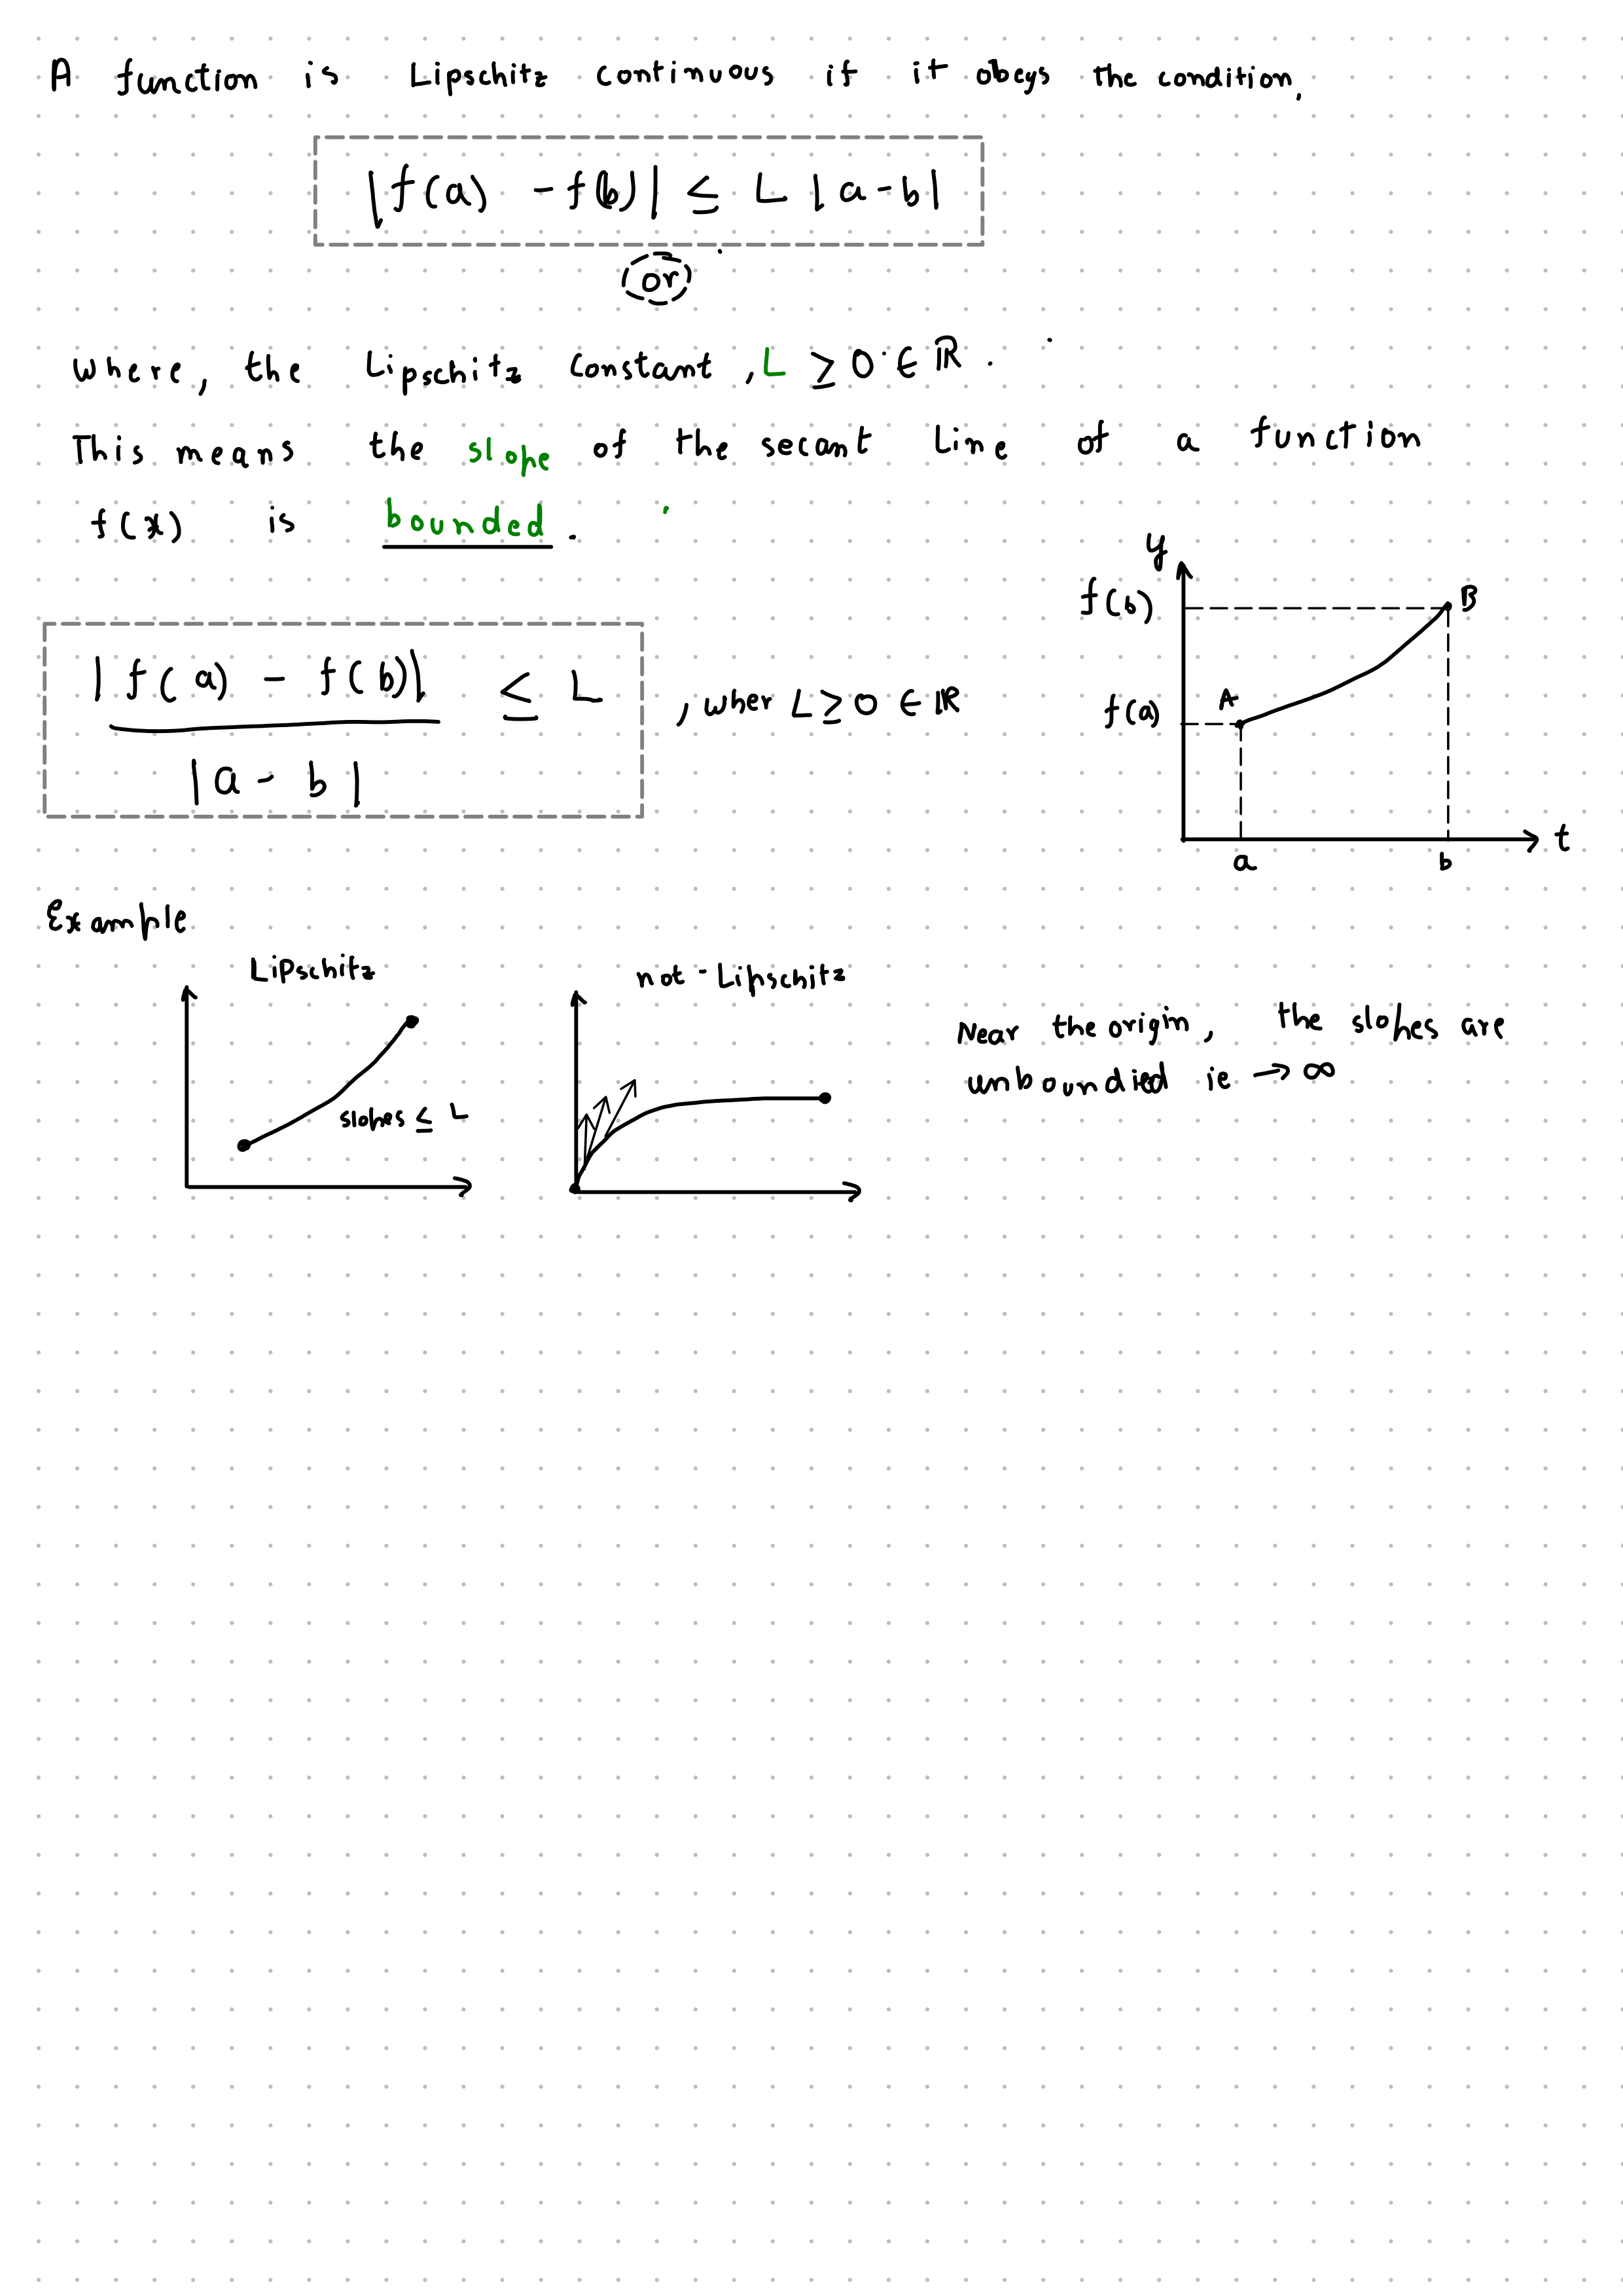 A function is Lipschitz continuous if it obeys the condition,
|f(a) - f(b)| ≤ L |a - b|
or
where, the Lipschitz constant, L ≥ 0 ∈ ℝ.
This means the slope of the secant line of a function
f(x) is bounded.
|f(a) - f(b)| / |a - b| ≤ L , wher L ≥ 0 ∈ ℝ
y
f(b)
B
A
f(a)
t
a
b
Example
Lipschitz
slopes ≤ L
not-Lipschitz
Near the origin, the slopes are
unboundied ie → ∞